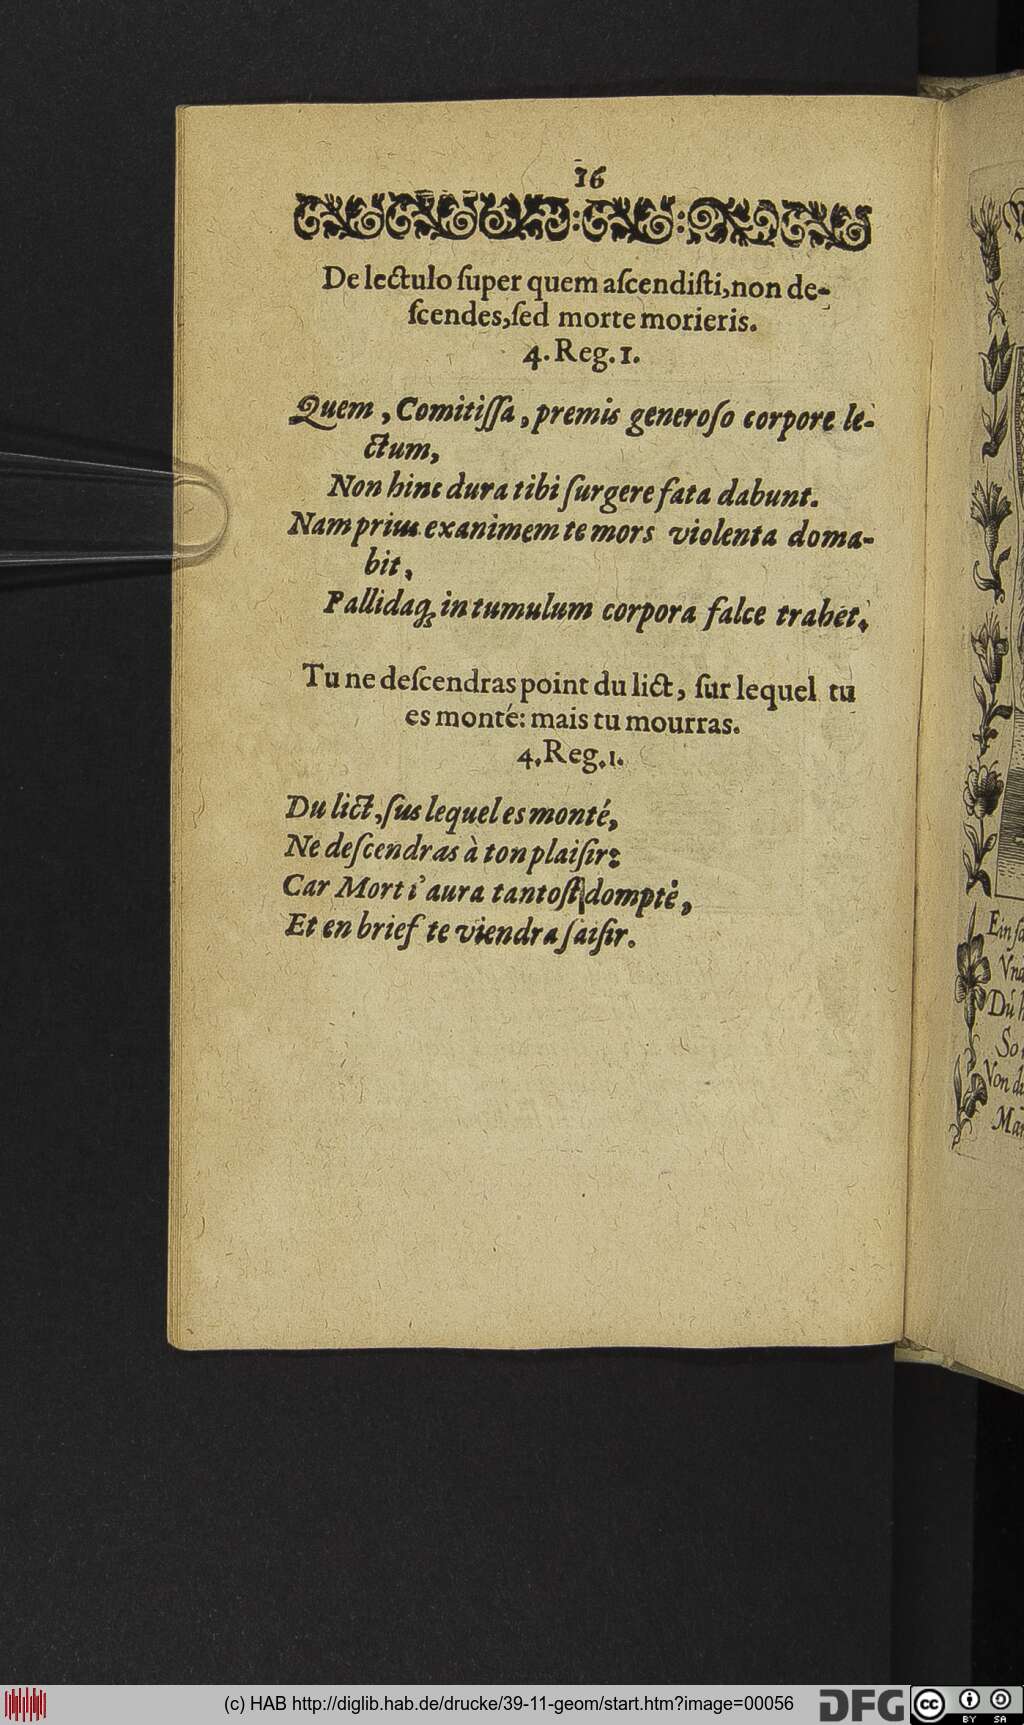 16
De lectulo ſuper quem aſcendiſti, non de-
ſcendes, ſed morte morieris.
4. Reg. 1.
Quem, Comitiſſa, premis generoſo corpore le-
ctum,
Non hinc dura tibi ſurgere fata dabunt.
Nam prius exanimem te mors violenta doma-
bit,
Pallidaq; in tumulum corpora falce trahet.
Tu ne deſcendras point du lict, ſur lequel tu
es monté: mais tu mourras.
4. Reg. 1.
Du lict, ſus lequel es monté,
Ne deſcendras à ton plaiſir:
Car Mort t'aura tantoſt dompté,
Et en brief te viendra ſaiſir.
Ein
Von
(c) HAB http://diglib.hab.de/drucke/39-11-geom/start.htm?image=00056
DFG
cc
BY SA